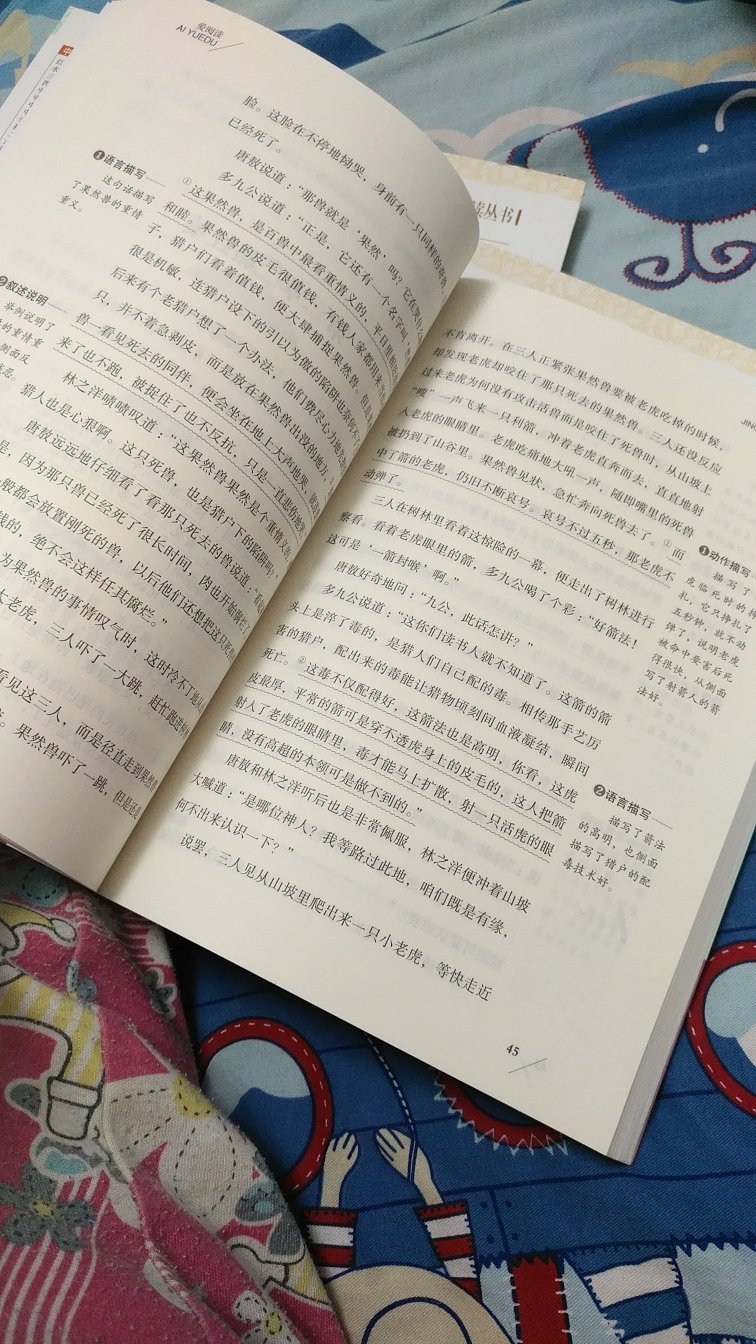 爱阅读
AI YUEDU
脸。这脸在不停地恸哭，身前有一只同样的奇兽，
已经死了。
唐敖说道：“那兽就是‘果然’吗？它在哭什么
多九公说道：“正是，它还有一个名字叫
①这果然兽，是百兽中最看重情义的，平日里
和睦。果然兽的皮毛很值钱，有钱人家都用来
子，猎户们看着值钱，便大肆捕捉果然兽。但是
很是机敏，连猎户设下的引以为傲的陷阱也奈何不了
后来有个老猎户想了一个办法，他们费尽心力地去
只，并不着急剥皮，而是放在果然兽出没的地方。
兽一看见死去的同伴，便会坐在地上大声地哭，就
来了也不跑，被捉住了也不反抗，只是一直悲伤地
林之洋啧啧叹道：“这果然兽果然是个重情义的，
猎人也是心狠啊。这只死兽，也是猎户下的陷阱吗？
唐敖远远地仔细看了看那只死去的兽说道：
是，因为那只兽已经死了很长时间，肉也开始腐烂了
般都会放置刚死的兽，以后他们还想把这只死
钱的，绝不会这样任其腐烂。”
为果然兽的事情叹气时，这时冷不丁地从
大老虎，三人吓了一大跳，赶忙跑进
看见这三人，而是径直走到果然兽
果然兽吓了一跳，但是还是
❶语言描写
这句话描写
了果然兽的重情
重义。
❷叙述说明
举例说明了
的重情重
侧面反
不肯离开。在三人正紧张果然兽要被老虎吃掉的时候，
却发现老虎却咬住了那只死去的果然兽。三人还没反应
过来老虎为何没有攻击活兽而是咬住了死兽时，从山坡上
“嗖”一声飞来一只利箭，冲着老虎直奔而去，直直地射
入老虎的眼睛里。老虎吃痛地大吼一声，随即嘴里的死兽
被扔到了山谷里。果然兽见状，急忙奔向死兽去了。①而
中了箭的老虎，仍旧不断哀号。哀号不过五秒，那老虎不
动弹了。
三人在树林里看着这惊险的一幕，便走出了树林进行
察看。看着老虎眼里的箭，多九公喝了个彩：“好箭法！
这可是‘一箭封喉’啊。”
唐敖好奇地问：“九公，此话怎讲？”
多九公说道：“这你们读书人就不知道了。这箭的箭
头上是淬了毒的，是猎人们自己配的毒。相传那手艺厉
害的猎户，配出来的毒能让猎物顷刻间血液凝结，瞬间
死亡。②这毒不仅配得好，这箭法也是高明，你看，这虎
皮最厚，平常的箭可是穿不透虎身上的皮毛的，这人把箭
射入了老虎的眼睛里，毒才能马上扩散，射一只活虎的眼
睛，没有高超的本领可是做不到的。”
唐敖和林之洋听后也是非常佩服，林之洋便冲着山坡
大喊道：“是哪位神人？我等路过此地，咱们既是有缘，
何不出来认识一下？”
说罢，三人见从山坡里爬出来一只小老虎，等快走近
❶动作描写
描写了
虎临死时的挣
扎，它只挣扎了
五秒钟，就不动
弹了，说明老虎
被命中要害后死
得很快，从侧面
写了射箭人的箭
法好。
❷语言描写
描写了箭法
的高明，也侧面
描写了猎户的配
毒技术好。
45
丛书